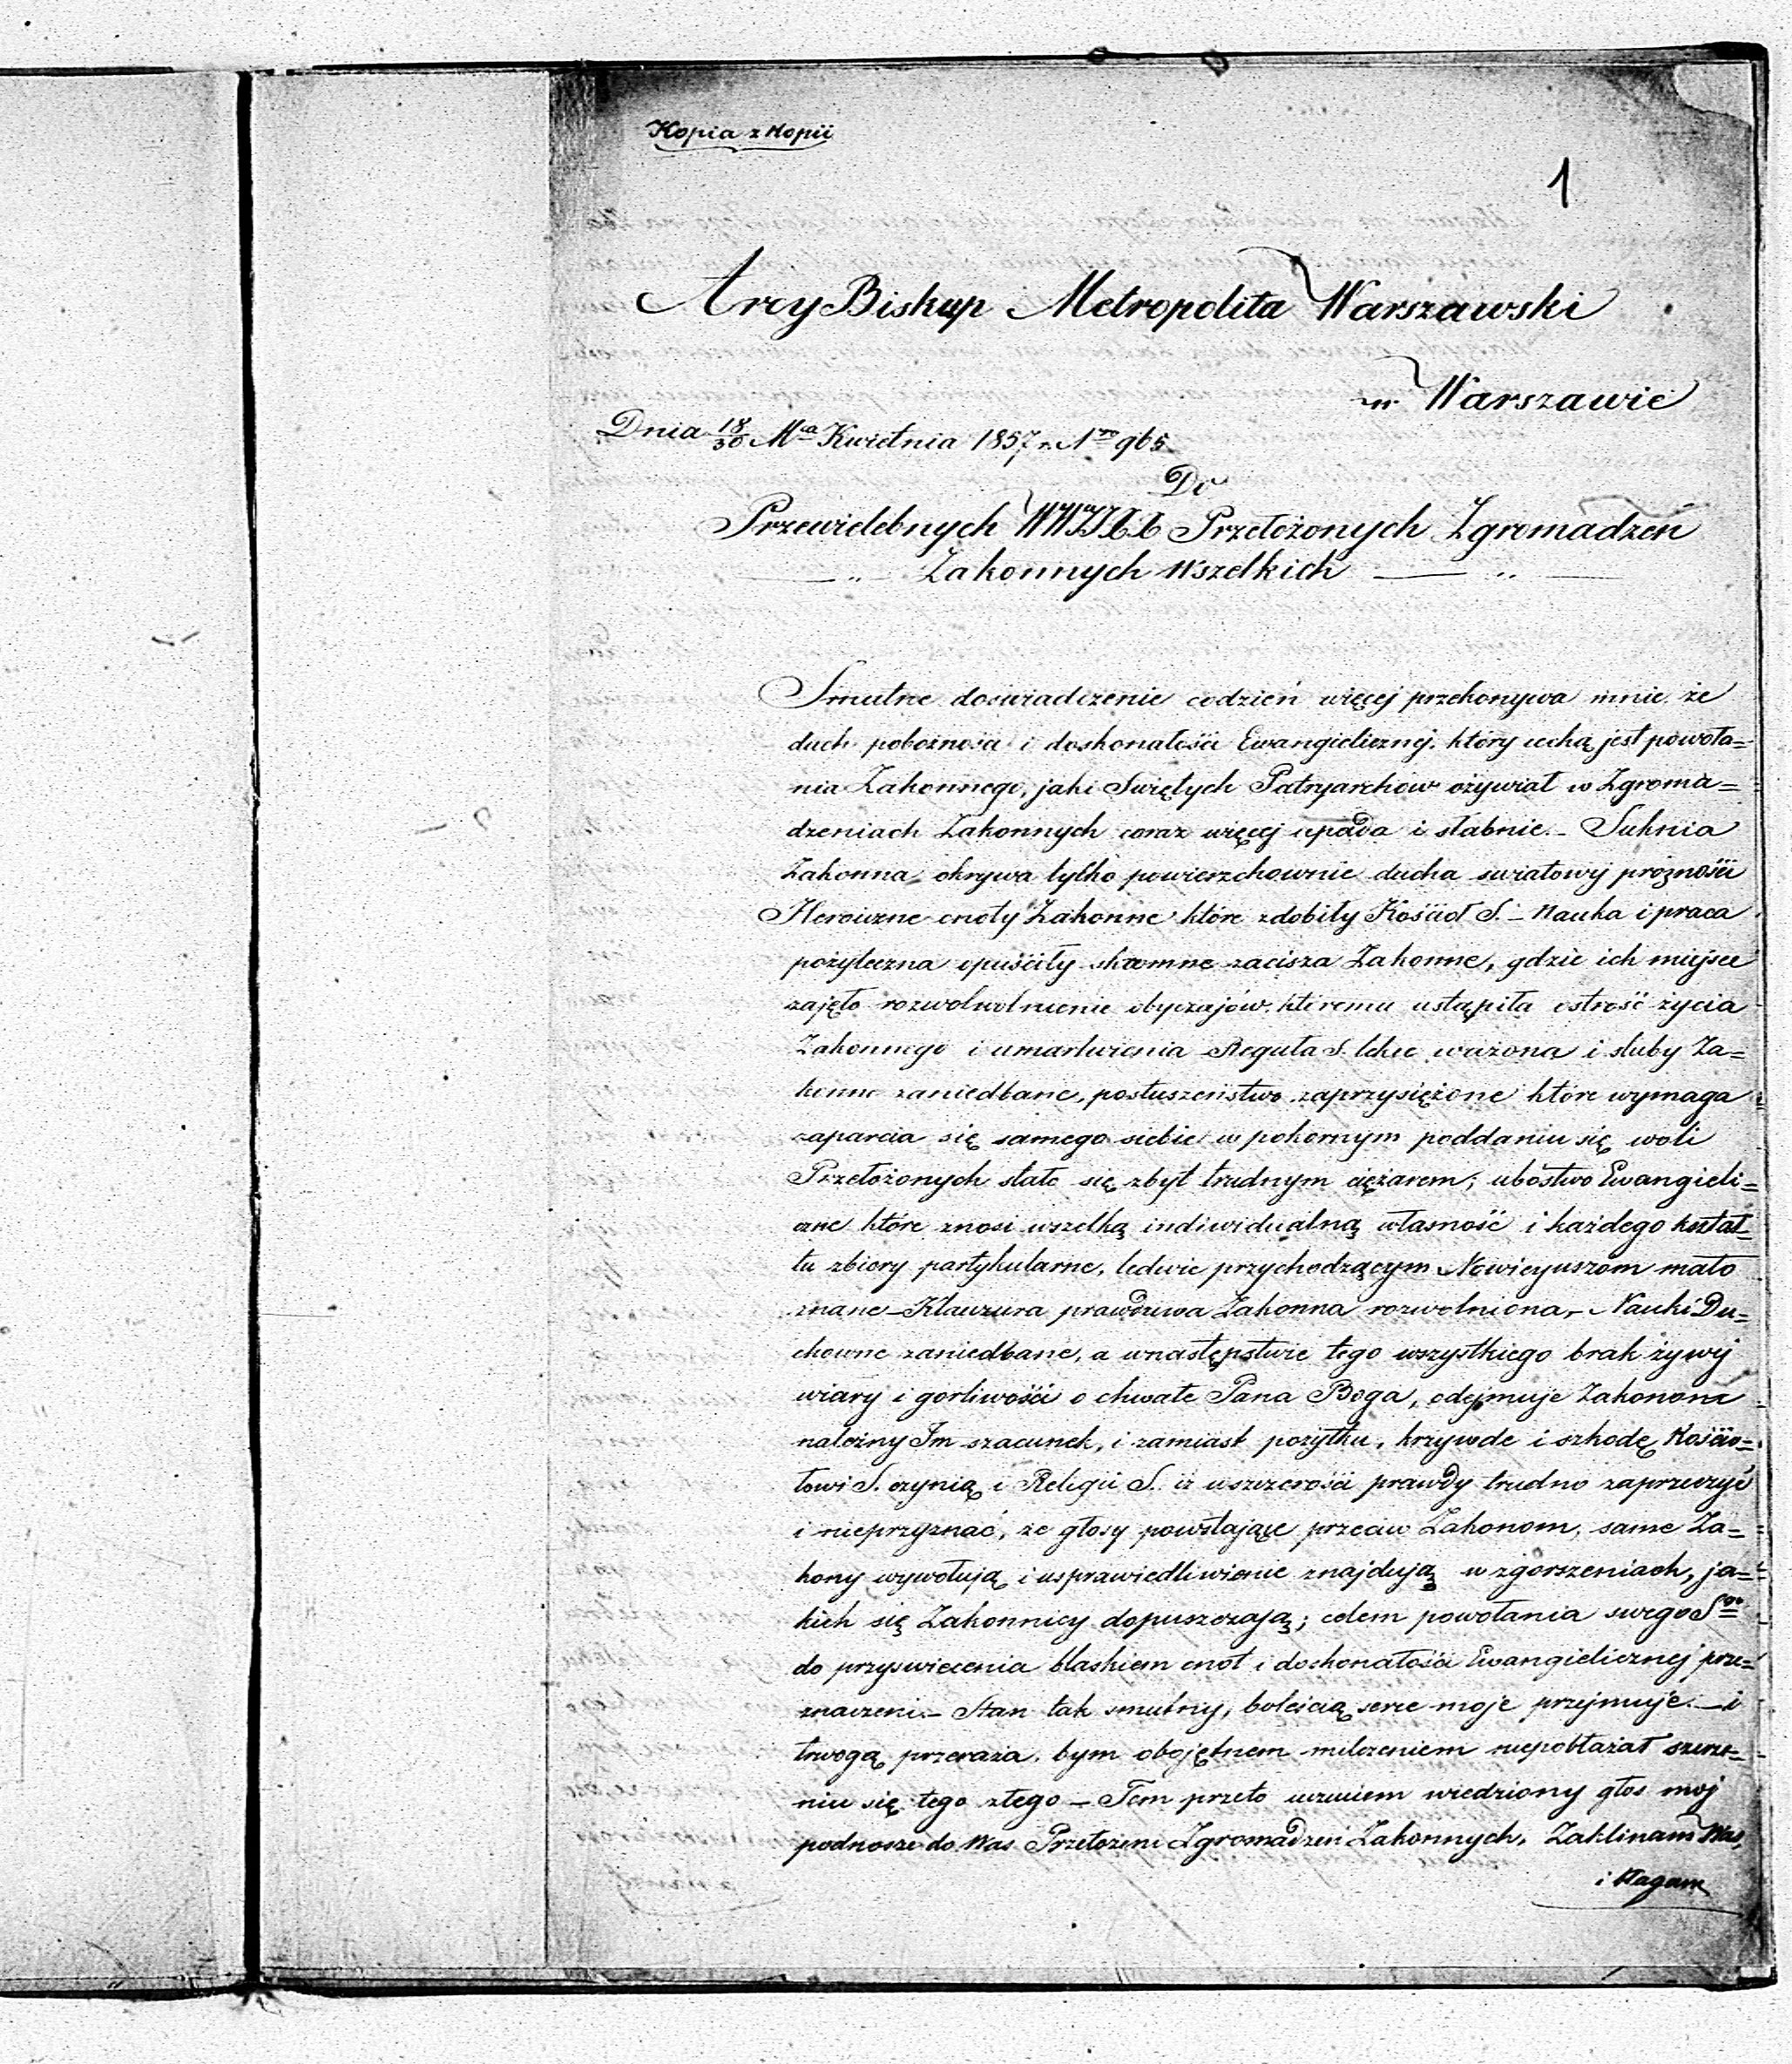 Kopia z Kopii
1
Arcy Biskup Metropolita Warszawski
w Warszawie
Dnia 18/30 Mca Kwietnia 1857 r. Nro 965
Do
Przewielebnych WWJJXX Przełożonych Zgromadzeń
Zakonnych Wszelkich
Smutne doswiadczenie codzień więcej przekonywa mnie że
duch pobożności i doskonałości Ewangielicznej, który cechą jest powoła=
nia Zakonnego, jaki Swiętych Patryarchow ożywiał w Zgroma=
dzeniach Zakonnych coraz więcej upada i słabnie. – Suknia
Zakonna okrywa tylko powierzchownie ducha swiatowej prózności
Heroiczne cnoty Zakonne które zdobiły Kościoł S. – Nauka i praca
pożyteczna opuściły skromne zacisza Zakonne, gdzie ich miejsce
zajęło rozwolnienie obyczajów, któremu ustąpiła ostrość życia
Zakonnego i umartwienia – Reguła S. lekce ważona i sluby Za=
konne zaniedbane, posłuszeństwo zaprzysiężone które wymaga
zaparcia się samego siebie w pokornym poddaniu się woli
Przełożonych stało się zbyt trudnym ciężarem; ubóstwo Ewangieli=
czne które znosi wszelką indiwidualną własność i każdego kształ=
tu zbiory partykularne, ledwie przychodzącym Nowicyuszóm mało
znane – Klauzura prawdziwa Zakonna rozwolniona, – Nauki Du=
chowne zaniedbane, a wnastępstwie tego wszystkiego brak żywej
wiary i gorliwości o chwałe Pana Boga, odejmuje Zakonom
należny Im szacunek, i zamiast pożytku, krzywde i szkodę Kościo=
łowi S. czynią i Religii S. iż w szczerości prawdy trudno zaprzeczyć
i nieprzyznać, że głosy powstające przeciw Zakonom, same Za=
kony wywołują i usprawiedliwienie znajdują w zgorszeniach, ja=
kich się Zakonnicy dopuszczają; celem powołania swego Sgo
do przyswiecenia blaskiem cnot i doskonałości Ewangielicznej prze=
znaczeni. – Stan tak smutny, boleścią serce moje przejmuje. – i
trwogą przeraża, bym obojętnem milczeniem niepobłażał szerze=
niu się tego złego – Tem przeto uczuciem wiedziony głos moj
podnosze do Was Przełożeni Zgromadzeń Zakonnych, Zaklinam Was,
i błagam